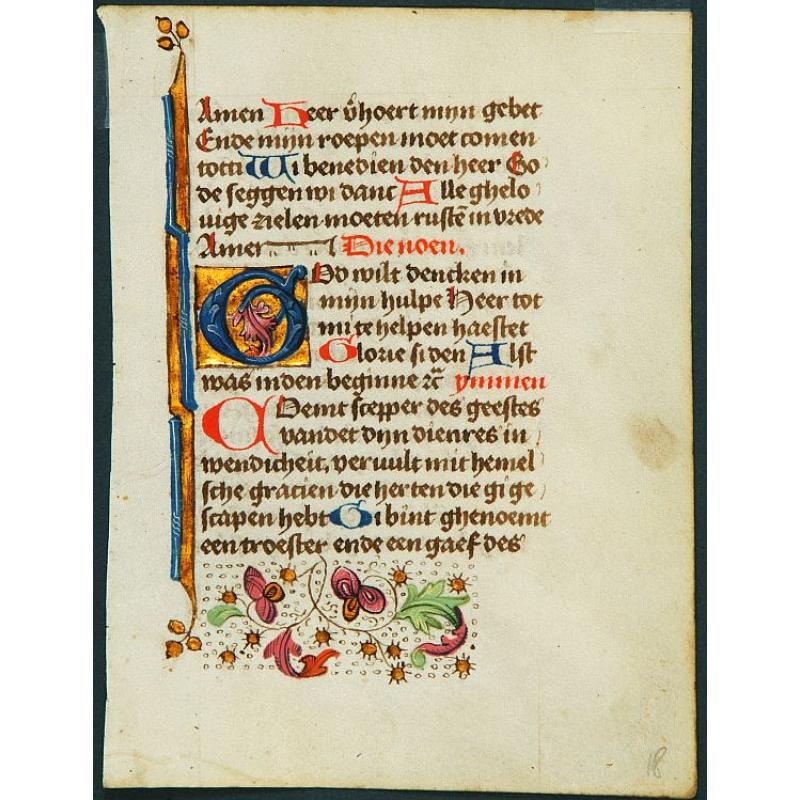 Amen Heer v̄hoert mijn gebet
Ende mijn roepen moet comen
totti Wi benedien den heer Go
de seggen wi danc Alle ghelo
uige zielen moeten rustē in vrede
Amen Die noen.
God wilt dencken in
mijn hulpe Heer tot
mi te helpen haestet
Glorie si den Alst
was inden beginne ⁊c̄ ymmen
Coemt scepper des geestes
vandet dijn dienres in
wendicheit, vervult mit hemel
sche gracien die herten die gi ge
scapen hebt Gi bint ghenoemt
een troester ende een gaef des
18